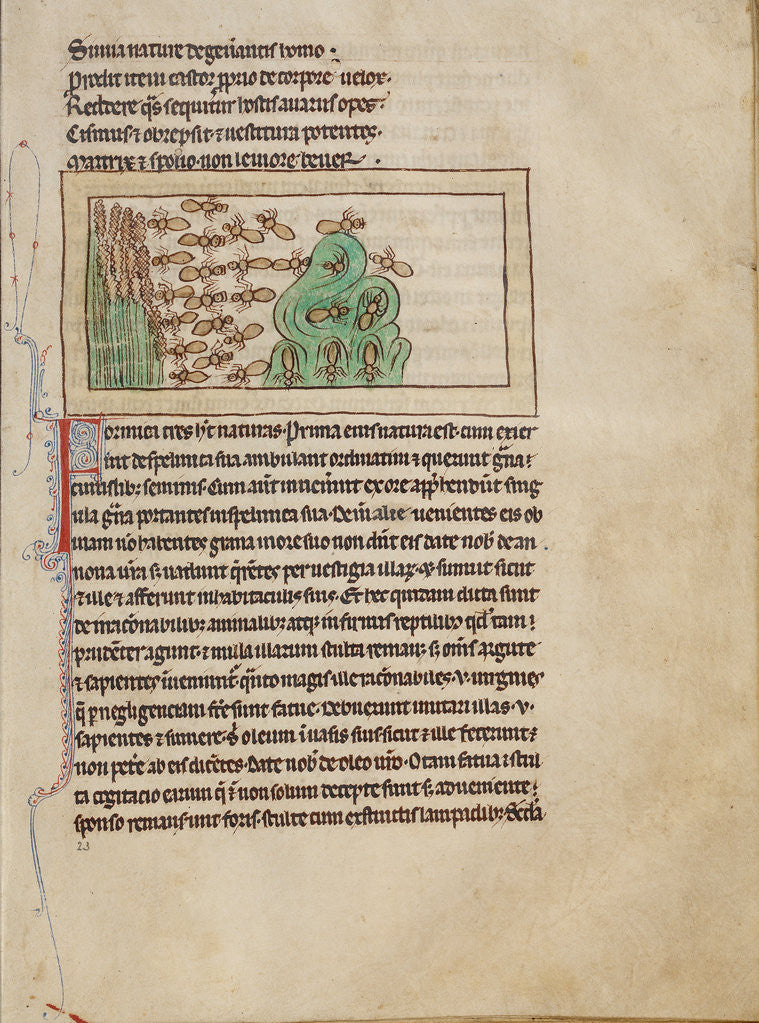 Simia nature degen̄antis homo .
Prodit item castor p̱prio de corpore uelox .
Reddere q̄s sequit᷑ hostis auarus opes .
Cisimus ⁊ obrepsit ⁊ uestitura potentes .
Martrix ⁊ spolio non leuiore beuer .
Formica tres hn̄t naturas . Prima eius natura est . cum exier
int de spelunca sua ambulant ordinatim ⁊ querunt g̃na
cuiuslibꝫ seminis . Cum aūt inuenerint ex ore app̃hendūt sing
ula g̃na portantes in spelunca sua . Dein̄ alie uenientes eis ob
uiam n̄o habentes grana in ore suo non dn̄t eis date nob̄ de an
nona ur̄a s; uadunt q̃rētes per uestigia illaꝝ . sumunt sicut
⁊ ille ⁊ afferunt in habitaculis suis . Et hec quidam dicta sunt
de irrac̄onabilibꝫ animalibꝫ atqꝫ infirmis reptilibꝫ qd̄ tam
prudēter agunt . ⁊ nulla illarum stulta reman; s; om̄s argute
⁊ sapientes īueniunt᷑ . q̃nto magis ille rac̄onabiles . v . uirgines
q̄ p negligenciam f̄c̄e sunt fatue . Debuerunt imitari illas . v .
sapientes ⁊ sumere s̄ oleum ī uasis suis sicut ⁊ ille fecerunt ⁊
non pete᷑ ab eis dicētes . Date nob̄ de oleo ur̄o . O tam fatua ⁊ stul
ta cogitacio earum q̄ ⁊ non solum decepte sunt s; adueniente
sponso remanserunt foris . stulte cum exstinctis lampadibꝫ .
23